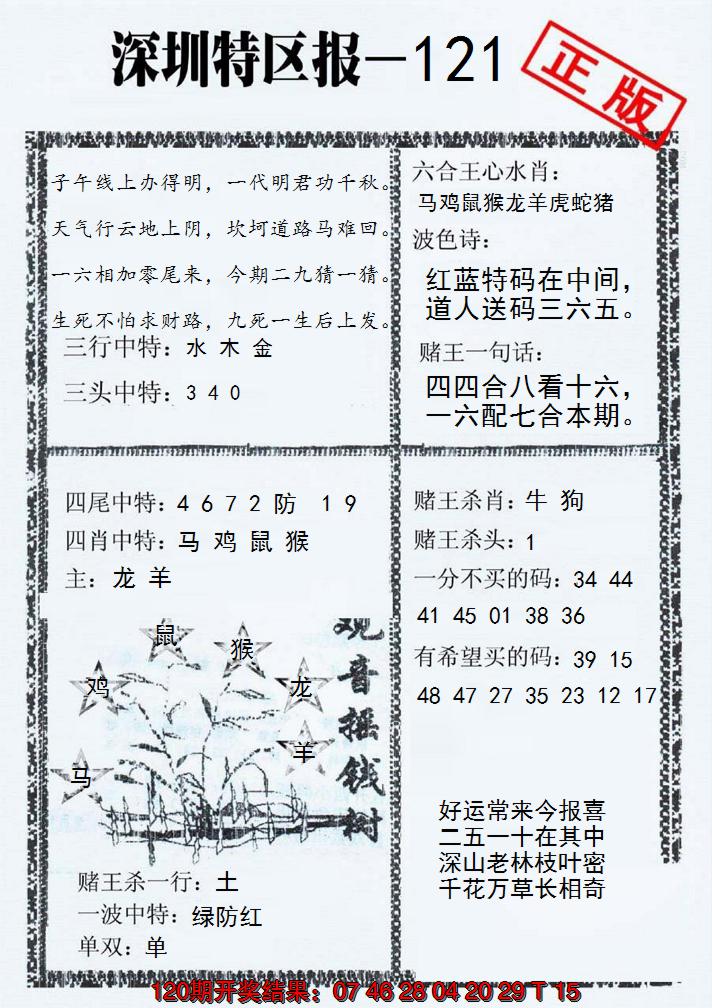 深圳特区报—121
正版
子午线上办得明，一代明君功千秋。
天气行云地上阴，坎坷道路马难回。
一六相加零尾来，今期二九猜一猜。
生死不怕求财路，九死一生后上发。
三行中特：水 木 金
三头中特：3 4 0
六合王心水肖：
马鸡鼠猴龙羊虎蛇猪
波色诗：
红蓝特码在中间，
道人送码三六五。
赌王一句话：
四四合八看十六，
一六配七合本期。
四尾中特：4 6 7 2 防 1 9
四肖中特：马 鸡 鼠 猴
主：龙 羊
鼠
猴
鸡
龙
羊
马
观音摇钱树
赌王杀一行：土
一波中特：绿防红
单双：单
赌王杀肖：牛 狗
赌王杀头：1
一分不买的码：34 44
41 45 01 38 36
有希望买的码：39 15
48 47 27 35 23 12 17
好运常来今报喜
二五一十在其中
深山老林枝叶密
千花万草长相奇
120期开奖结果：07 46 28 04 20 29 T 15